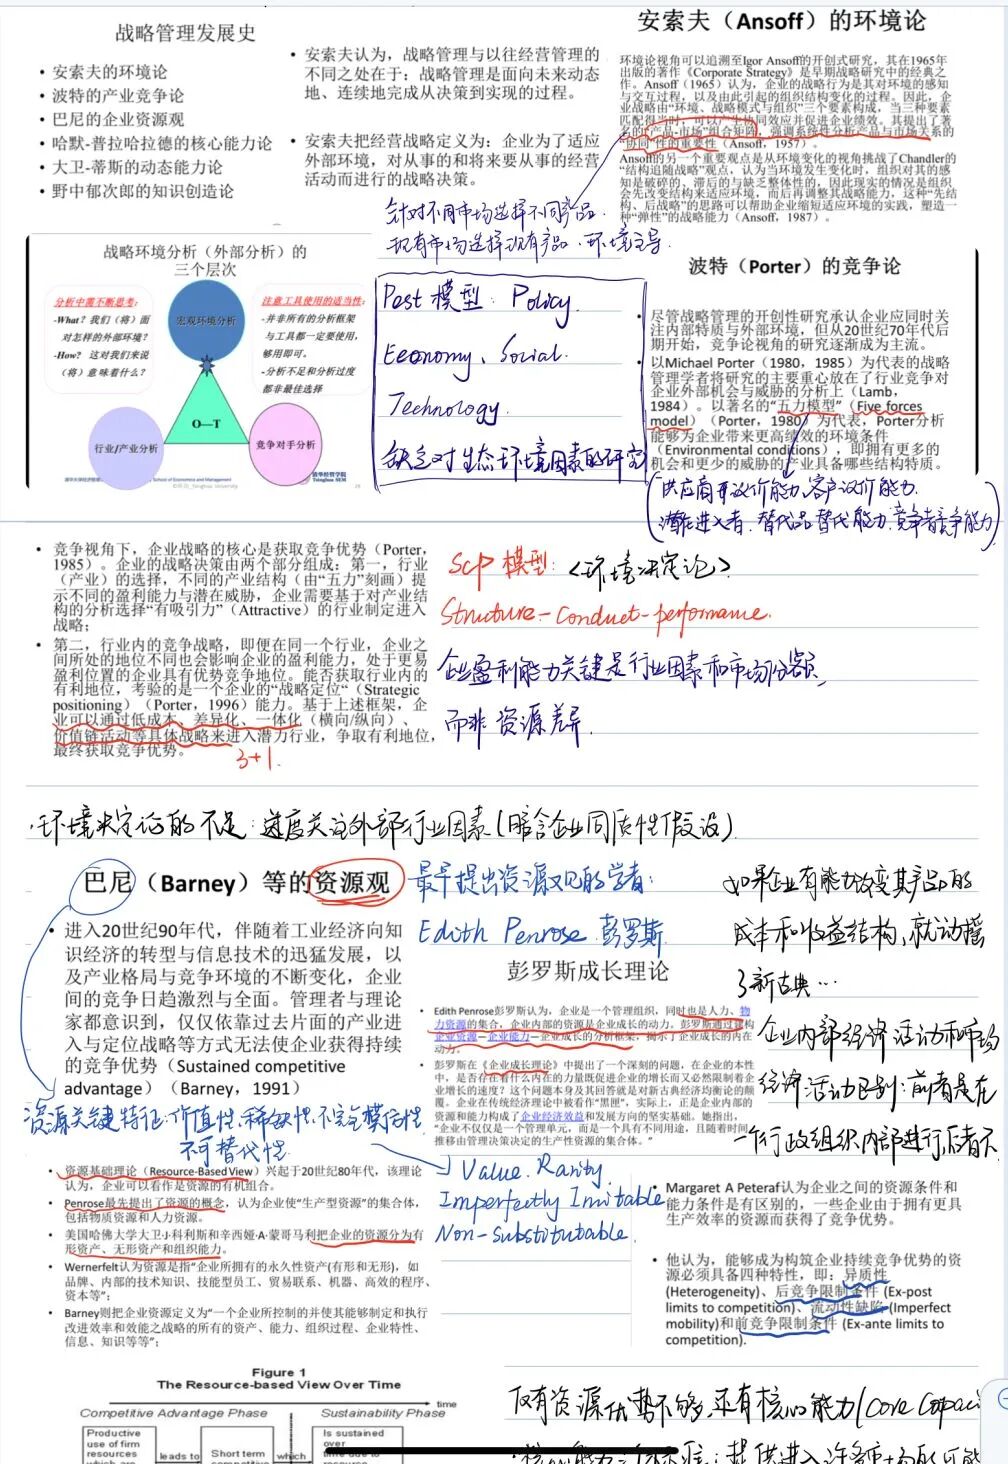 战略管理发展史
• 安索夫的环境论
• 波特的产业竞争论
• 巴尼的企业资源观
• 哈默-普拉哈拉德的核心能力论
• 大卫-蒂斯的动态能力论
• 野中郁次郎的知识创造论
• 安索夫认为，战略管理与以往经营管理的
不同之处在于：战略管理是面向未来动态
地、连续地完成从决策到实现的过程。
• 安索夫把经营战略定义为：企业为了适应
外部环境，对从事的和将来要从事的经营
活动而进行的战略决策。
安索夫（Ansoff）的环境论
环境论视角可以追溯至Igor Ansoff的开创式研究，其在1965年
出版的著作《Corporate Strategy》是早期战略研究中的经典之
作。Ansoff（1965）认为，企业的战略行为是其对环境的感知
与交互过程，以及由此引起的组织结构变化的过程。因此，企
业战略由“环境、战略模式与组织”三个要素构成，当三种要素
匹配得当时，可以产生协同效应并促进企业绩效。其提出了著
名的“产品-市场”组合矩阵，强调系统性分析产品与市场关系的
“协同”性的重要性（Ansoff, 1957）。
Ansoff的另一个重要观点是从环境变化的视角挑战了Chandler的
“结构追随战略”观点，认为当环境发生变化时，组织对其的感
知是破碎的、滞后的与缺乏整体性的，因此现实的情况是组织
会先改变结构来适应环境，而后再调整其战略能力，这种“先结
构、后战略”的思路可以帮助企业缩短适应环境的实践，塑造一
种“弹性”的战略能力（Ansoff, 1987）。
针对不同市场选择不同产品.
现有市场选择现有产品. 环境主导.
战略环境分析（外部分析）的
三个层次
分析中需不断思考:
-What？我们（将）面
对怎样的外部环境？
-How？ 这对我们来说
（将）意味着什么？
宏观环境分析
注意工具使用的适当性:
-并非所有的分析框架
与工具都一定要使用，
够用即可。
-分析不足和分析过度
都非最佳选择
O—T
行业/产业分析
竞争对手分析
School of Economics and Management
清华经管学院
Tsinghua SEM
Pest 模型: Policy.
Economy、Social.
Technology.
缺乏对生态环境因素的研究
波特（Porter）的竞争论
• 尽管战略管理的开创性研究承认企业应同时关
注内部特质与外部环境，但从20世纪70年代后
期开始，竞争论视角的研究逐渐成为主流。
• 以Michael Porter（1980, 1985）为代表的战略
管理学者将研究的主要重心放在了行业竞争对
企业外部机会与威胁的分析上（Lamb,
1984）。以著名的“五力模型”（Five forces
model）（Porter, 1980）为代表，Porter分析
能够为企业带来更高绩效的环境条件
（Environmental conditions），即拥有更多的
机会和更少的威胁的产业具备哪些结构特质。
供应商议价能力, 客户议价能力.
潜在进入者. 替代品替代能力. 竞争者竞争能力
• 竞争视角下，企业战略的核心是获取竞争优势（Porter,
1985）。企业的战略决策由两个部分组成：第一，行业
（产业）的选择，不同的产业结构（由“五力”刻画）提
示不同的盈利能力与潜在威胁，企业需要基于对产业结
构的分析选择“有吸引力”（Attractive）的行业制定进入
战略；
• 第二，行业内的竞争战略，即便在同一个行业，企业之
间所处的地位不同也会影响企业的盈利能力，处于更易
盈利位置的企业具有优势竞争地位。能否获取行业内的
有利地位，考验的是一个企业的“战略定位“（Strategic
positioning）（Porter, 1996）能力。基于上述框架，企
业可以通过低成本、差异化、一体化（横向/纵向）、
价值链活动等具体战略来进入潜力行业，争取有利地位，
最终获取竞争优势。
3+1
SCP 模型: <环境决定论>
Structure-Conduct-performance.
企业盈利能力关键是行业因素和市场份额,
而非资源差异.
·环境决定论的不足: 过度关注外部行业因素(暗含企业同质性假设).
巴尼（Barney）等的资源观
• 进入20世纪90年代，伴随着工业经济向知
识经济的转型与信息技术的迅猛发展，以
及产业格局与竞争环境的不断变化，企业
间的竞争日趋激烈与全面。管理者与理论
家都意识到，仅仅依靠过去片面的产业进
入与定位战略等方式无法使企业获得持续
的竞争优势（Sustained competitive
advantage）（Barney, 1991）
资源关键特征: 价值性. 稀缺性. 不完全模仿性
不可替代性.
最早提出资源观的学者:
Edith Penrose. 彭罗斯
彭罗斯成长理论
• Edith Penrose彭罗斯认为，企业是一个管理组织，同时也是人力、物
力资源的集合，企业内部的资源是企业成长的动力。彭罗斯通过建构
企业资源—企业能力—企业成长的分析框架，揭示了企业成长的内在
动力。
• 彭罗斯在《企业成长理论》中提出了一个深刻的问题，在企业的本性
中，是否存在着什么内在的力量既促进企业的增长而又必然限制着企
业增长的速度？这个问题本身及其回答就是对新古典经济均衡论的颠
覆。企业在传统经济理论中被看作“黑匣”，实际上，正是企业内部的
资源和能力构成了企业经济效益和发展方向的坚实基础。她指出，
“企业不仅仅是一个管理单元，而是一个具有不同用途，且随着时间
推移由管理决策决定的生产性资源的集合体。”
如果企业有能力改变其产品的
成本和收益结构, 就动摇
了新古典…
企业内部经济活动和市场
经济活动区别: 前者是在
一个行政组织内部进行, 后者不
Value. Rarity
Imperfectly Imitable
Non-substitutable.
• 资源基础理论（Resource-Based View）兴起于20世纪80年代，该理论
认为，企业可以看作是资源的有机组合。
• Penrose最先提出了资源的概念，认为企业使“生产型资源”的集合体，
包括物质资源和人力资源。
• 美国哈佛大学大卫·J·科利斯和辛西娅·A·蒙哥马利把企业的资源分为有
形资产、无形资产和组织能力。
• Wernerfelt认为资源是指“企业所拥有的永久性资产(有形和无形)，如
品牌、内部的技术知识、技能型员工、贸易联系、机器、高效的程序、
资本等”；
• Barney则把企业资源定义为“一个企业所控制的并使其能够制定和执行
改进效率和效能之战略的所有的资产、能力、组织过程、企业特性、
信息、知识等等”；
• Margaret A Peteraf认为企业之间的资源条件和
能力条件是有区别的，一些企业由于拥有更具
生产效率的资源而获得了竞争优势。
• 他认为，能够成为构筑企业持续竞争优势的资
源必须具备四种特性，即：异质性
(Heterogeneity)、后竞争限制条件 (Ex-post
limits to competition)、流动性缺陷 (Imperfect
mobility)和前竞争限制条件 (Ex-ante limits to
competition).
Figure 1
The Resource-based View Over Time
time
Competitive Advantage Phase
Sustainability Phase
Productive
use of firm
resources
which are
leads to
Short term
which
Is sustained
over
仅有资源优势不够, 还有核心能力(Core